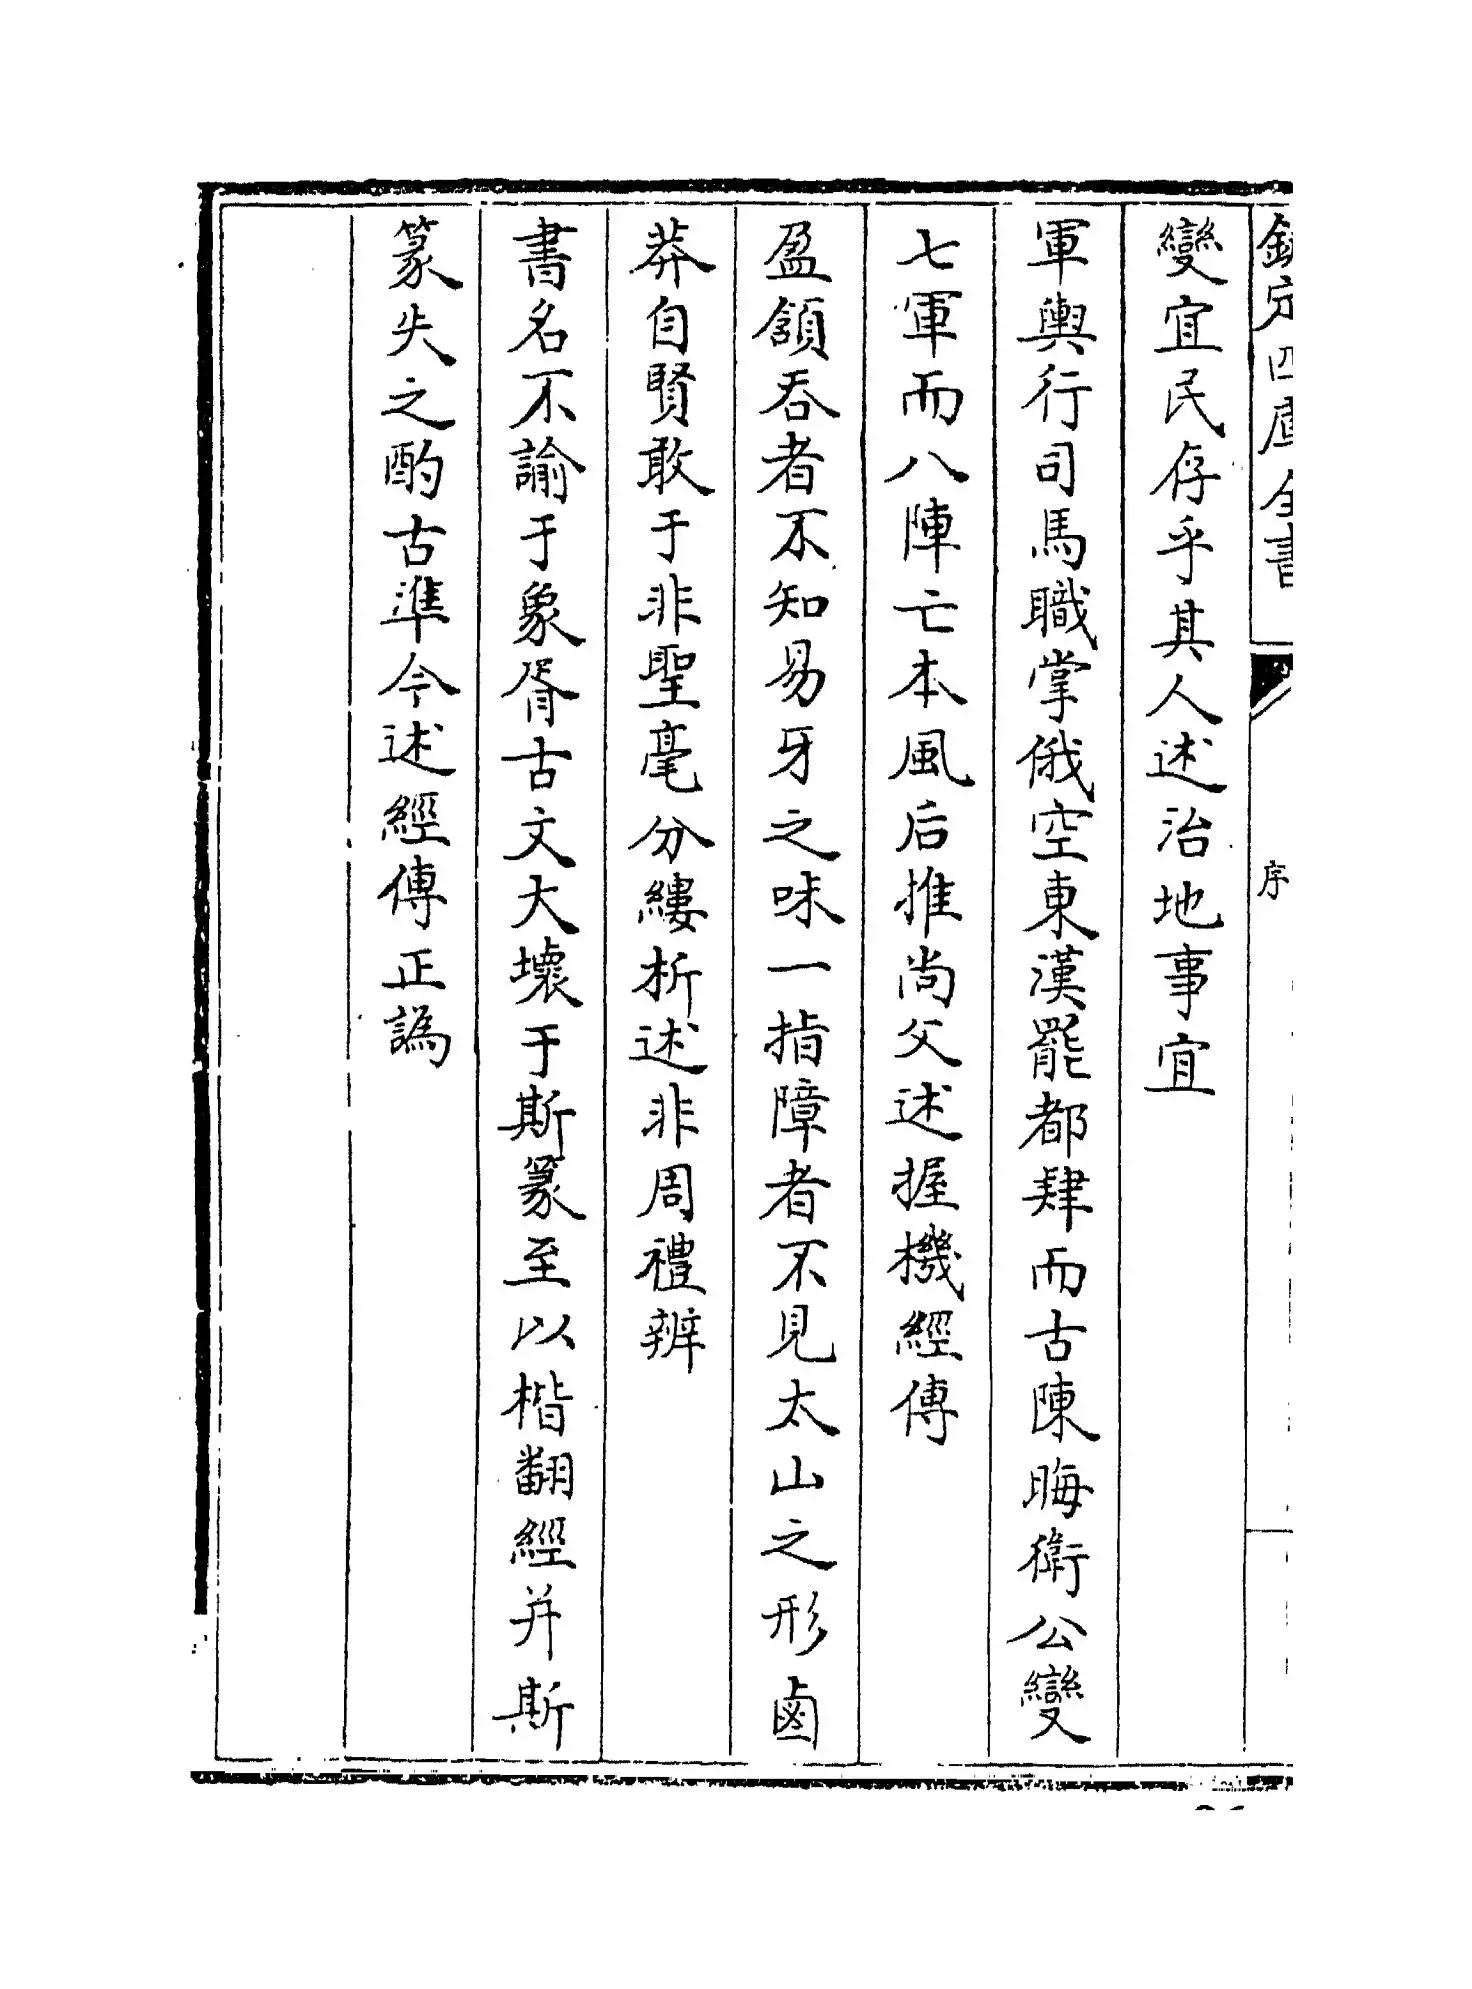 欽定四庫全書
序
變宜民存乎其人述治地事宜
軍輿行司馬職掌俄空東漢罷都肆而古陳晦衛公變
七軍而八陣亡本風后推尚父述握機經傳
盈頷吞者不知易牙之味一指障者不見太山之形鹵
莽自賢敢于非聖毫分縷析述非周禮辨
書名不諭于象胥古文大壞于斯篆至以楷翻經并斯
篆失之酌古準今述經傳正譌